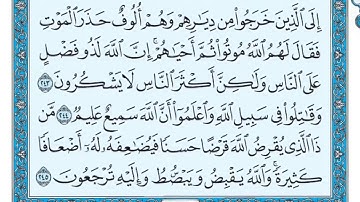 إِلَى ٱلَّذِينَ خَرَجُوا۟ مِن دِيَـٰرِهِمْ وَهُمْ أُلُوفٌ حَذَرَ ٱلْمَوْتِ
فَقَالَ لَهُمُ ٱللَّهُ مُوتُوا۟ ثُمَّ أَحْيَـٰهُمْ ۚ إِنَّ ٱللَّهَ لَذُو فَضْلٍ
عَلَى ٱلنَّاسِ وَلَـٰكِنَّ أَكْثَرَ ٱلنَّاسِ لَا يَشْكُرُونَ ٢٤٣
وَقَـٰتِلُوا۟ فِى سَبِيلِ ٱللَّهِ وَٱعْلَمُوٓا۟ أَنَّ ٱللَّهَ سَمِيعٌ عَلِيمٌ ٢٤٤ مَّن
ذَا ٱلَّذِى يُقْرِضُ ٱللَّهَ قَرْضًا حَسَنًا فَيُضَـٰعِفَهُۥ لَهُۥٓ أَضْعَافًا
كَثِيرَةً ۚ وَٱللَّهُ يَقْبِضُ وَيَبْصُۜطُ وَإِلَيْهِ تُرْجَعُونَ ٢٤٥